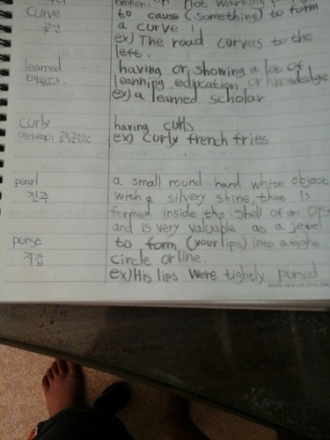 broken. or not working
curve to cause (something) to form
a curve
ex) The road curves to the
left.
learned having or showing a lot of
learning, education or knowledge
ex) a learned scholar
curly having curls
ex) curly french fries
pearl a small round hard white object
진주 with a silvery shine, that is
formed inside the shell of an oys
and is very valuable as a jewel
purse to form (your lips) into a tight
지갑 circle or line.
ex) His lips were tightly pursed